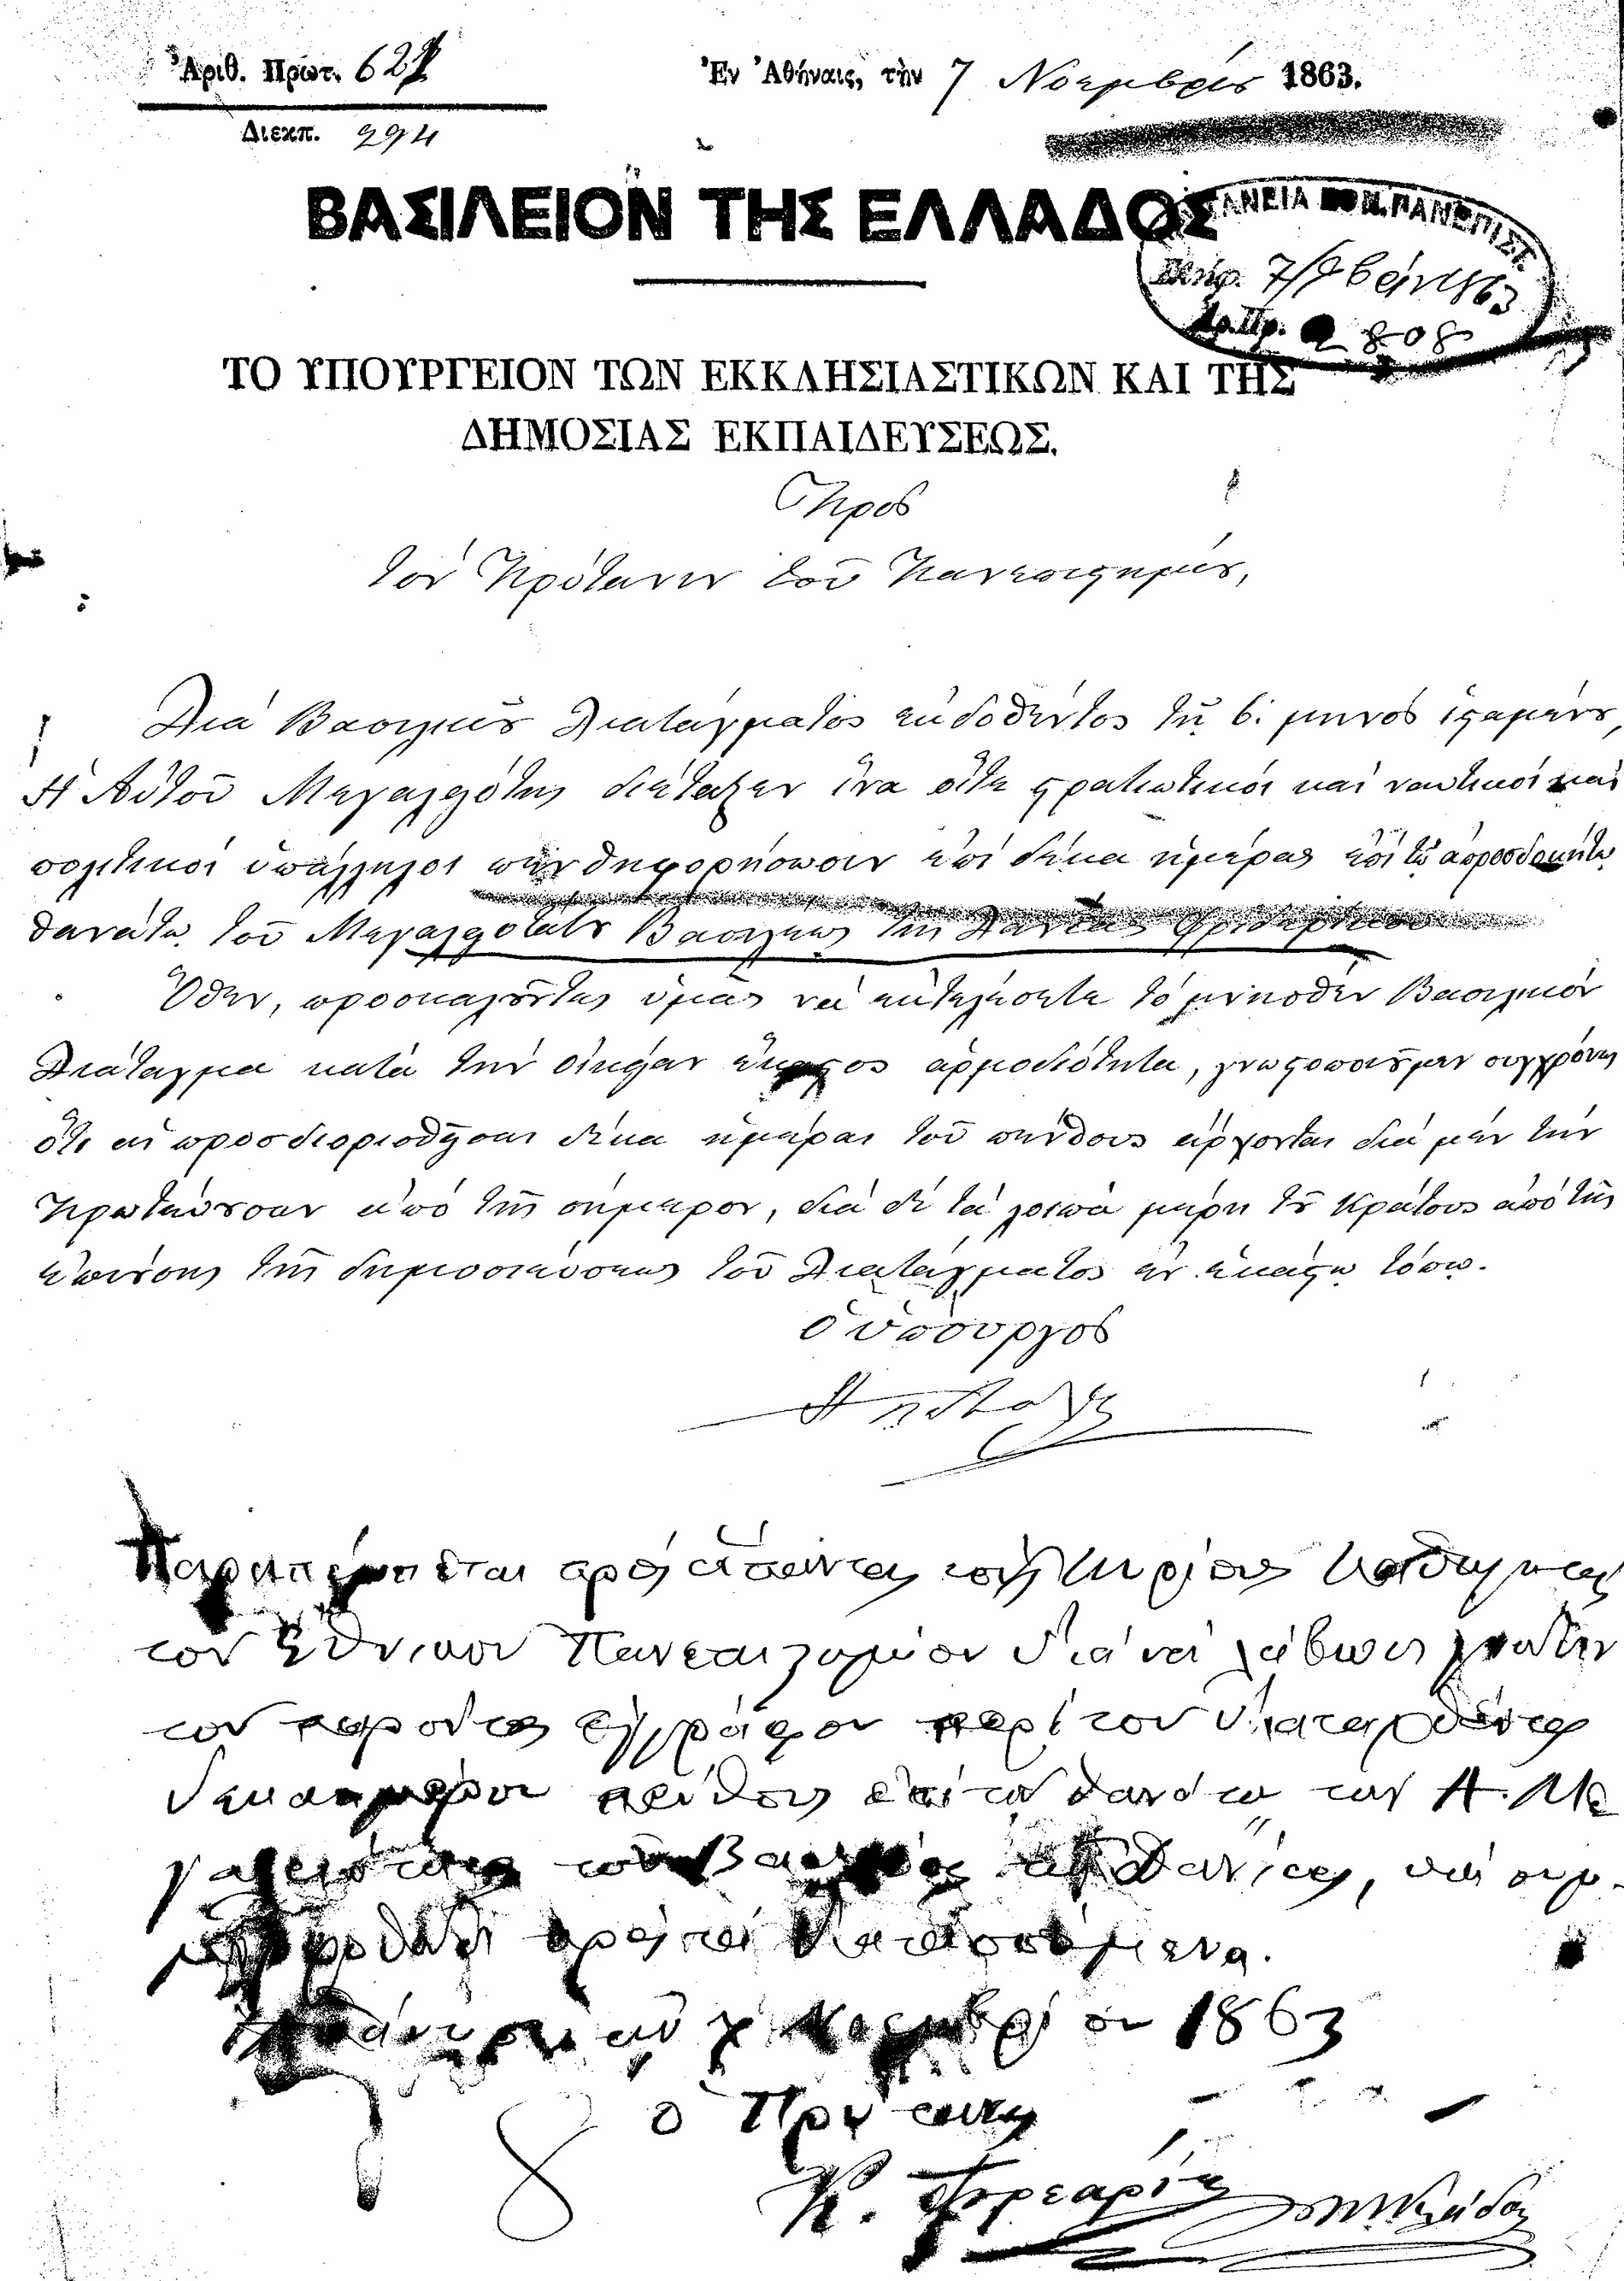 Ἀριθ. Πρωτ. 627
Ἐν Ἀθήναις, τὴν 7 Νοεμβρίου 1863.
Διεκπ. 294
ΒΑΣΙΛΕΙΟΝ ΤΗΣ ΕΛΛΑΔΟΣ
ΠΑΝΕΠΙΣΤ.
808
ΤΟ ΥΠΟΥΡΓΕΙΟΝ ΤΩΝ ΕΚΚΛΗΣΙΑΣΤΙΚΩΝ ΚΑΙ ΤΗΣ
ΔΗΜΟΣΙΑΣ ΕΚΠΑΙΔΕΥΣΕΩΣ.
Πρὸς
τὸν Πρύτανιν τοῦ Πανεπιστημίου,
Διὰ Βασιλικοῦ Διατάγματος ἐκδοθέντος τῇ 6. μηνὸς ἱσταμένου,
Ἡ Αὐτοῦ Μεγαλειότης διέταξεν ἵνα οἵτε στρατιωτικοὶ καὶ ναυτικοὶ καὶ
πολιτικοὶ ὑπάλληλοι πενθηφορήσωσιν ἐπὶ δέκα ἡμέρας ἐπὶ τῷ ἀπροσδοκήτῳ
θανάτῳ τοῦ Μεγαλειοτάτου Βασιλέως τῆς Δανίας Φριδερίκου
Ὅθεν, προσκαλοῦντες ὑμᾶς νὰ ἐκτελέσητε τὸ μνησθὲν Βασιλικὸν
Διάταγμα κατὰ τὴν οἰκείαν ἕκαστος ἁρμοδιότητα, γνωστοποιοῦμεν συγχρόνως
ὅτι αἱ προσδιορισθεῖσαι δέκα ἡμέραι τοῦ πένθους ἄρχονται διὰ μὲν τὴν
Πρωτεύουσαν ἀπὸ τῆς σήμερον, διὰ δὲ τὰ λοιπὰ μέρη τοῦ Κράτους ἀπὸ τῆς
ἐπιούσης τῆς δημοσιεύσεως τοῦ Διατάγματος ἐν ἑκάστῳ τόπῳ.
ὁ ὑπουργὸς
Παραπέμπεται πρὸς ἅπαντας τοὺς Κυρίους Καθηγητὰς
τοῦ Ἐθνικοῦ Πανεπιστημίου διὰ νὰ λάβωσι γνῶσιν
τοῦ παρόντος ἐγγράφου περὶ τοῦ διαταχθέντος
δεκαημέρου πένθους ἐπὶ τῷ θανάτῳ τῆς Α. Με
γαλειότητος τοῦ Βασιλέως τῆς Δανίας, καὶ συμ-
μορφωθῶσι πρὸς τὰ διατασσόμενα.
Νοεμβρίου 1863
ὁ Πρύτανις
Κ.